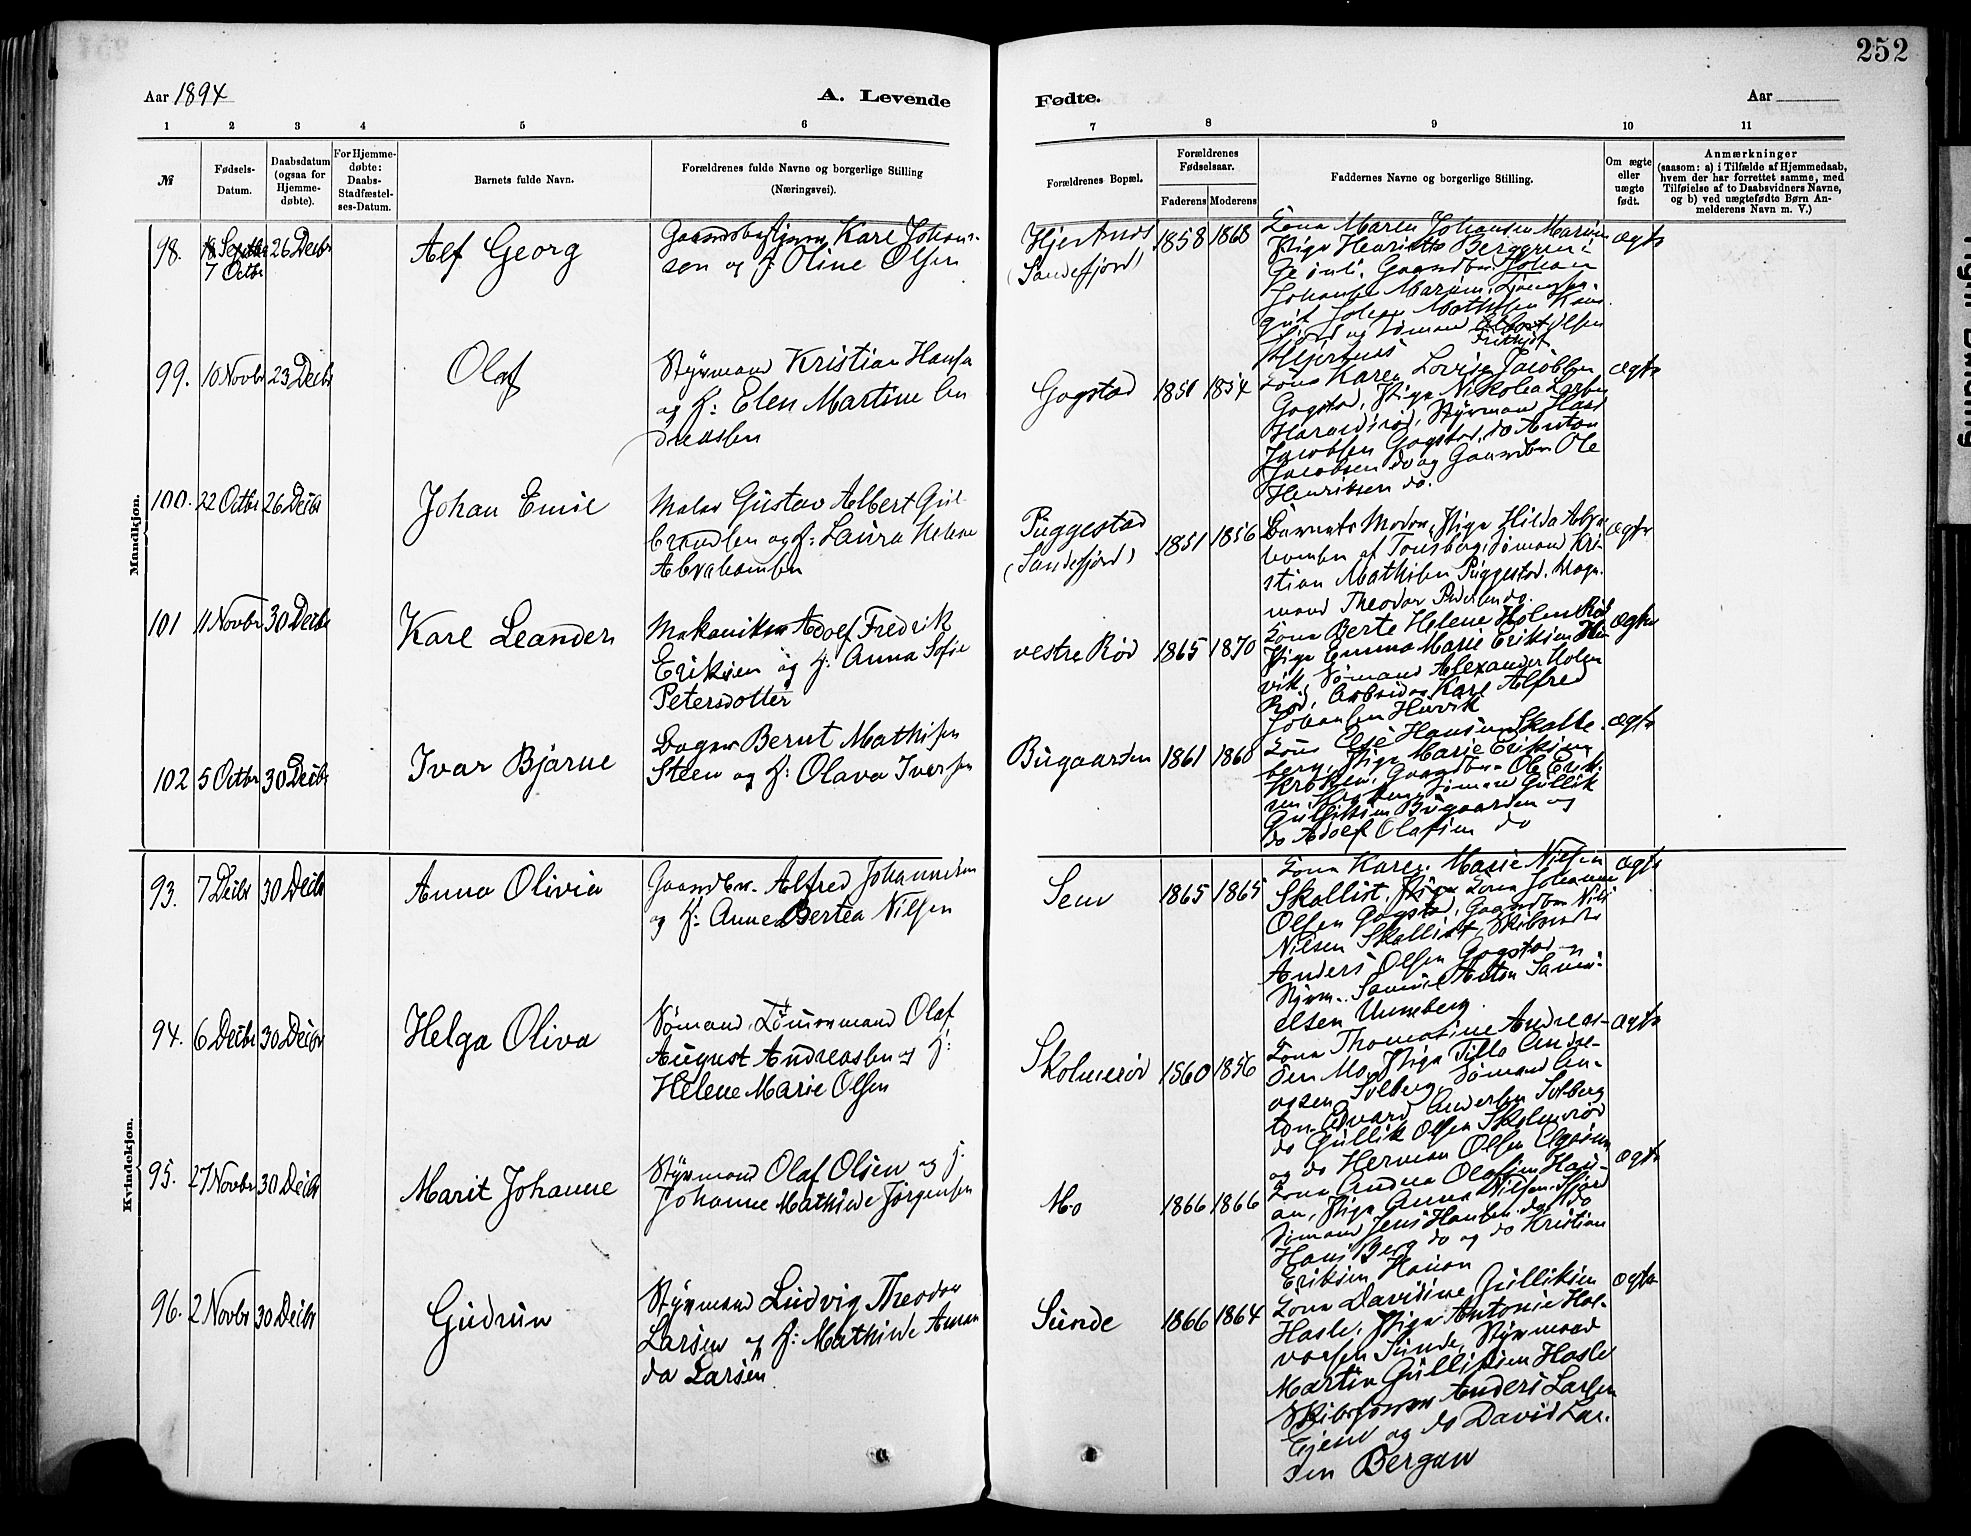 252
Aar 1894
A. Levende
Fødte.
Aar
1 2 3 4 5 6 7 8 9 10 11
№
Fødsels-
Datum.
Daabsdatum
(ogsaa for
Hjemme-
døbte).
For Hjemme-
døbte:
Daabs-
Stadfæstel-
ses-Datum.
Barnets fulde Navn.
Forældrenes fulde Navne og borgerlige Stilling
(Næringsvei).
Forældrenes Bopæl.
Forældrenes
Fødselsaar.
Faderens Moderens
Faddernes Navne og borgerlige Stilling.
Om ægte
eller
uægte
født.
Anmærkninger
(saasom: a) i Tilfælde af Hjemmedaab,
hvem der har forrettet samme, med
Tilføielse af to Daabsvidners Navne,
og b) ved uægtefødte Børn An-
melderens Navn m. V.)
Mandkjøn.
98. 7 Octbr 26 Decbr
Alf Georg
Karl Johan-
sen og H: Oline Olsen
Hjertnæs
(Sandefjord)
1858 1868
Kona Maren Johansen
Pige Henriette Berggren
Gaardbr. Johan
ægte
99. 10 Novbr 23 Decbr
Olaf
Styrmand Kristian Hansen
og H: Elen Martine An
dreassen
Gogstad
1851 1854
Kona Karen Lovise Jacobsen
Gogstad, Pige Nikolea Larsen
Haraldsrød, Styrmand Hans
Jacobsen Gogstad, do Anton
Jacobsen do og Gaardbr Ole
Henriksen do.
ægte
100. 22 Octbr 26 Decbr
Johan Emil
Maler Gustav Albert Gul
brandsen og H: Laura Helene
Abrahamsen
Puggestad
(Sandefjord)
1851 1856
Barnets Moder, Pige Hilda Abra
hamsen af Tønsberg, Sømand Kri-
stian Mathisen Puggestad, Vogn-
mand Theodor Pedersen do.
ægte
101 11 Novbr 30 Decbr
Karl Leander
Mekaniker Adolf Fredrik
Eriksen og H: Anna Sofie
Petersdotter
vestre Rød
1865 1870
Kona Berte Helene Holm Rød
Pige Emma Marie Eriksen Hu-
vik, Sømand Alexander Holm
Rød, Arbeider Karl Alfred
Johansen Huvik
ægte
102 5 Octbr 30 Decbr
Ivar Bjarne
Bager Bernt Mathisen
Steen og H: Olava Iversen
Bugaarden
1861 1868
Kona Else Hansen Skalle-
berg, Pige Marie Eriksen
Krokken, Gaardbr. Ole Erik-
sen Krokken, Sømand Gullik
Gulliksen Bugaarden og
do Adolf Olafsen do
ægte
Kvindekjøn.
93. 7 Decbr 30 Decbr
Anna Olivia
Gaardbr. Alfred Johannesen
og H: Anne Bertea Nilsen
Sem
1865 1865
Kona Karen Marie Nilsen
Skallist, Pige Lona Johanne
Olsen Gogstad, Gaardbr Nils
Nilsen Skallist, Skibsreder
Anders Olsen Gogstad og
Styrm. Samuel Anton Samu-
elsen Unneberg.
ægte
94. 6 Decbr 30 Decbr
Helga Oliva
Sømand, Tømmermand Olaf
August Andreassen og H:
Helene Marie Olsen
Skolmerød
1860 1856
Kona Thomasine Andreas-
sen Mo, Pige Tilla Andre-
assen Solberg, Sømand An-
ton Edvard Andersen Solberg
do Gullik Olsen Skolmerød
og do Herman Olsen
ægte
95. 27 Novbr 30 Decbr
Marit Johanne
Styrmand Olaf Olsen og H.
Johanne Mathilde Jørgensen
Mo
1866 1866
Kona Andrea Olafsen Hau-
an, Pige Anna Nilsen Fjord
Sømand Jens Hansen do, do
Hans Berg do og do Kristian
Eriksen Hauan
ægte
96. 2 Novbr 30 Decbr
Gudrun
Styrmand Ludvig Theodor
Larsen og H: Mathilde Aman
da Larsen
Sunde
1866 1864
Kona Davidine Gulliksen
Hasle, Pige Antonie Hal-
vorsen Sunde, Styrmand
Martin Gulliksen Hasle
Anders Larsen
og do David Lar-
sen Bergan
ægte